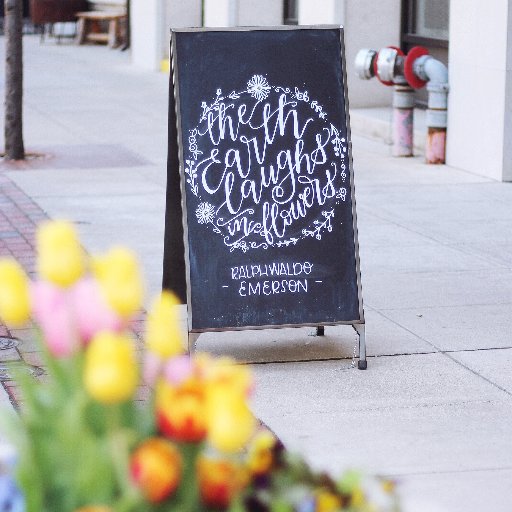 the earth
laughs
in flowers
RALPH WALDO
- EMERSON -